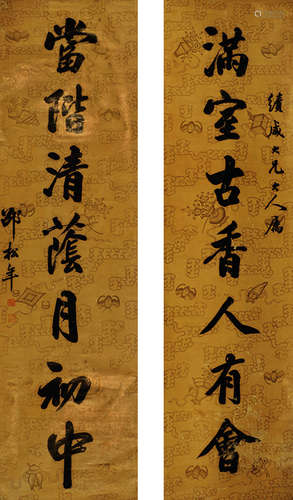 滿室古香人有會
績成大兄大人屬
當階清蔭月初中
邵松年